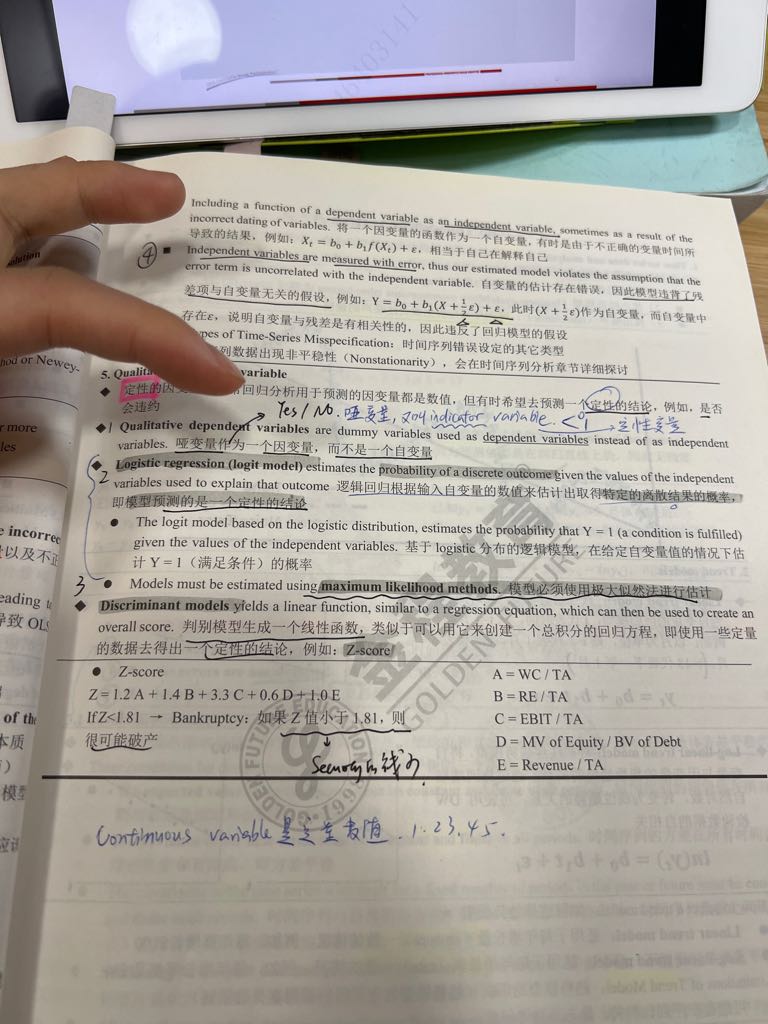 Including a function of a dependent variable as an independent variable, sometimes as a result of the
incorrect dating of variables. 将一个因变量的函数作为一个自变量，有时是由于不正确的变量时间所
导致的结果，例如：Xₜ = b₀ + b₁f(Xₜ) + ε，相当于自己在解释自己
④ ■ Independent variables are measured with error, thus our estimated model violates the assumption that the
error term is uncorrelated with the independent variable. 自变量的估计存在错误，因此模型违背了残
差项与自变量无关的假设，例如：Y = b₀ + b₁(X + ½ε) + ε，此时(X + ½ε)作为自变量，而自变量中
存在ε，说明自变量与残差是有相关性的，因此违反了回归模型的假设
ypes of Time-Series Misspecification: 时间序列错误设定的其它类型
列数据出现非平稳性（Nonstationarity），会在时间序列分析章节详细探讨
5. Qualita variable
◆ 定性的因变 回归分析用于预测的因变量都是数值，但有时希望去预测一个定性的结论，例如，是否
会违约
Yes / No. 哑变量, 又叫 indicator variable. 0 1 → 定性变量
◆1 Qualitative dependent variables are dummy variables used as dependent variables instead of as independent
variables. 哑变量作为一个因变量，而不是一个自变量
2 ◆ Logistic regression (logit model) estimates the probability of a discrete outcome given the values of the independent
variables used to explain that outcome 逻辑回归根据输入自变量的数值来估计出取得特定的离散结果的概率，
即模型预测的是一个定性的结论
● The logit model based on the logistic distribution, estimates the probability that Y = 1 (a condition is fulfilled)
given the values of the independent variables. 基于 logistic 分布的逻辑模型，在给定自变量值的情况下估
计 Y = 1（满足条件）的概率
● Models must be estimated using maximum likelihood methods. 模型必须使用极大似然法进行估计
3 ◆ Discriminant models yields a linear function, similar to a regression equation, which can then be used to create an
overall score. 判别模型生成一个线性函数，类似于可以用它来创建一个总积分的回归方程，即使用一些定量
的数据去得出一个定性的结论，例如：Z-score
● Z-score
Z = 1.2 A + 1.4 B + 3.3 C + 0.6 D + 1.0 E
If Z<1.81 → Bankruptcy：如果 Z 值小于 1.81，则
很可能破产
A = WC / TA
B = RE / TA
C = EBIT / TA
D = MV of Equity / BV of Debt
E = Revenue / TA
Continuous variable 是定量数值. 1. 2 3. 4 5.
金程教育
GOLDEN FUTURE
GOLDEN FUTURE EDUCATION
olution
hod or Newey-
r more
les
e incorrec
以及不正
eading to
导致 OLS
of the
本质
模型